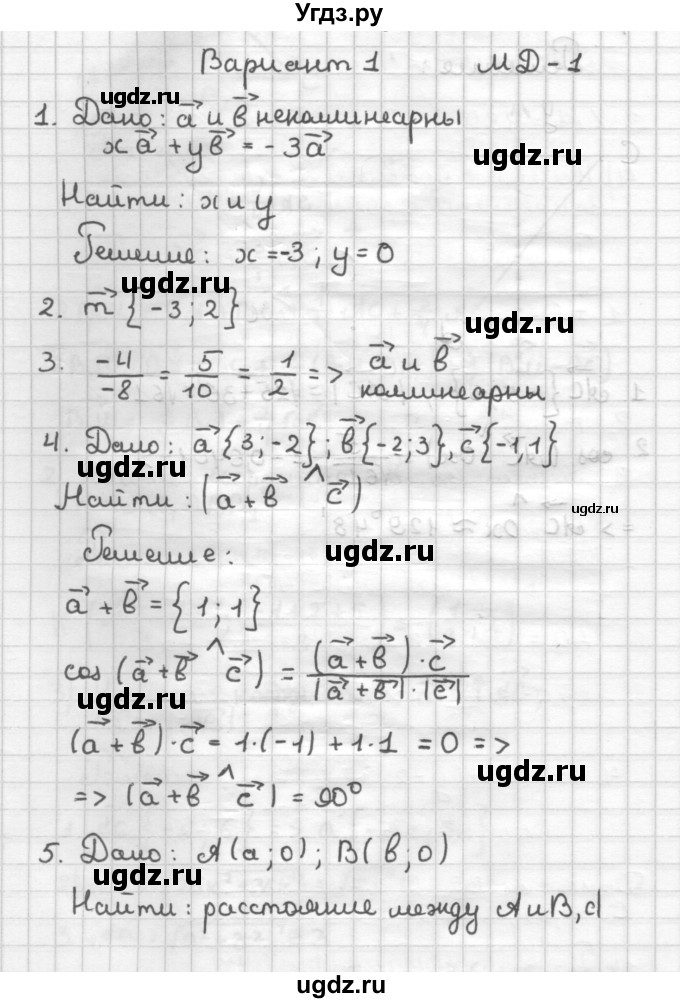 Угдз.ру
Вариант 1 МД-1
ugdz.ru
ugdz.ru
1. Дано: a⃗ и b⃗ неколлинеарны
xa⃗ + yb⃗ = -3a⃗
ugdz.ru
Найти: x и y
Решение: x = -3; y = 0
ugdz.ru
2. m⃗ {-3; 2}
ugdz.ru
3. -4/-8 = 5/10 = 1/2 => a⃗ и b⃗
коллинеарны
4. Дано: a⃗{3;-2}; b⃗{-2;3}, c⃗{-1,1}
ugdz.ru
ugdz.ru
Найти: (a⃗+b⃗ ^ c⃗)
ugdz.ru
Решение:
ugdz.ru
a⃗ + b⃗ = {1; 1}
cos (a⃗+b⃗ ^ c⃗) = (a⃗+b⃗)·c⃗ / |a⃗+b⃗|·|c⃗|
ugdz.ru
(a⃗+b⃗)·c⃗ = 1·(-1) + 1·1 = 0 =>
ugdz.ru
=> (a⃗+b⃗ ^ c⃗) = 90°
5. Дано: A(a;0); B(b;0)
ugdz.ru
Найти: расстояние между A и B, d
ugdz.ru
ugdz.ru